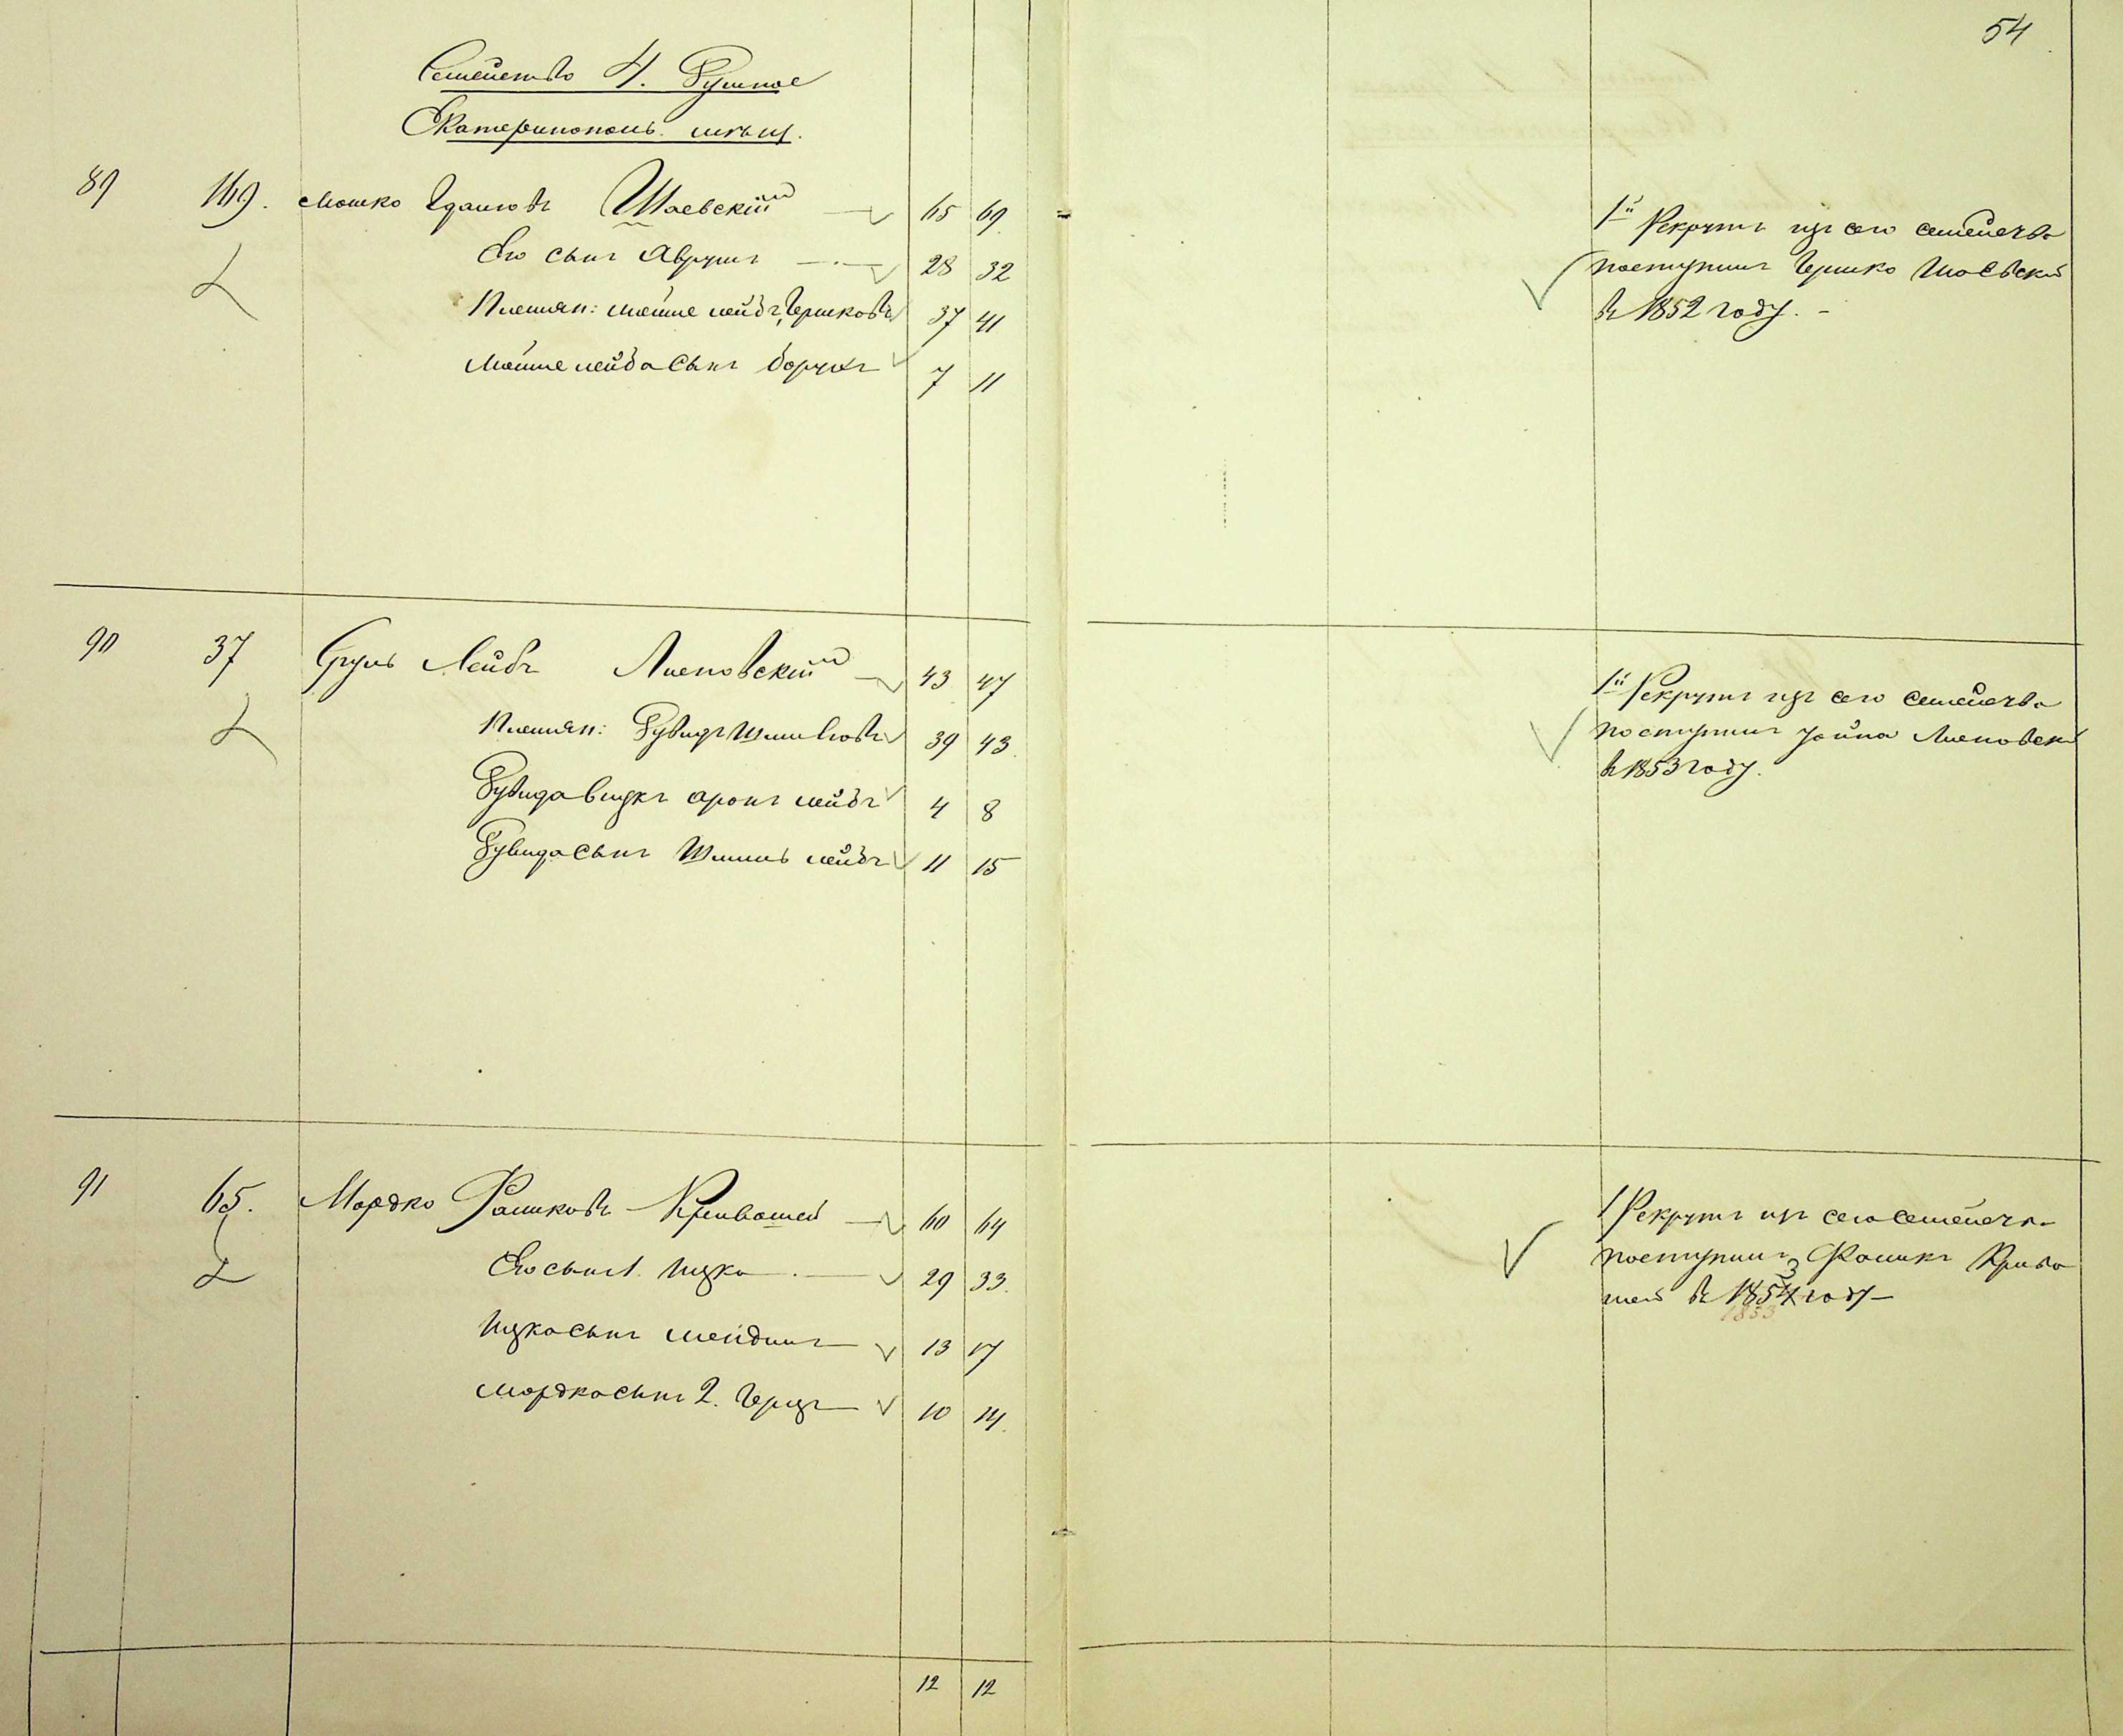 54
Семейство 4. Душное
Екатеринополь. мѣщ.
89 169. Мошко Ідановъ Шаевскій 65 69
Его сынъ Аврумъ 28 32
Племян: Мошне лейбъ Гершковъ 37 41
Мошне лейба сынъ Борухъ 7 11
1й Рекрутъ изъ сего семейства
поступилъ Гершко Шаевскій
въ 1852 году. -
90 37 Сруль Лейбъ Липовскій 43 47
Племян: Рувидъ Шмилёвъ 39 43
Рувида внукъ Аронъ лейбъ 4 8
Рувида сынъ Шмиль лейбъ 11 15
1й Рекрутъ изъ сего семейства
поступилъ Липовскій
въ 1853 году.
91 65. Мордко Фаликовъ Кривошей 60 64
Его сынъ 1. Ицко 29 33
Ицка сынъ Мендиль 13 17
Мордка сынъ 2. Герцъ 10 14
1 Рекрутъ изъ сего семейства
поступилъ Фаликъ Криво
шей въ 1853 году -
1853
12 12